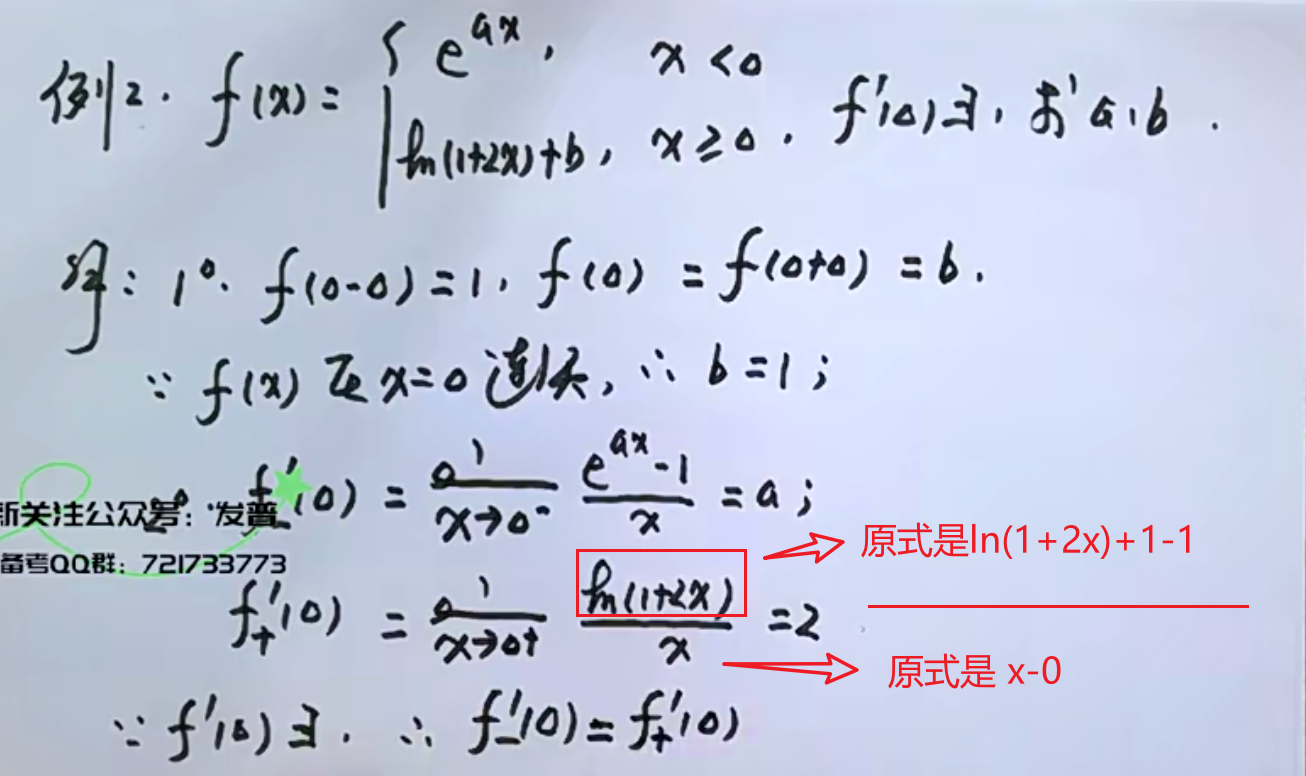 例2. f(x) = { e^{ax}, x < 0
ln(1+2x)+b, x ≥ 0. f'(0)∃, 求 a, b.
解: 1°. f(0-0) = 1, f(0) = f(0+0) = b.
∵ f(x) 在 x=0 连续, ∴ b = 1;
2° f'₋(0) = lim_{x→0⁻} (e^{ax} - 1)/x = a;
新关注公众号:发普
原式是ln(1+2x)+1-1
备考QQ群:721733773
f'₊(0) = lim_{x→0+} ln(1+2x)/x = 2
原式是 x-0
∵ f'(0)∃. ∴ f'₋(0) = f'₊(0)